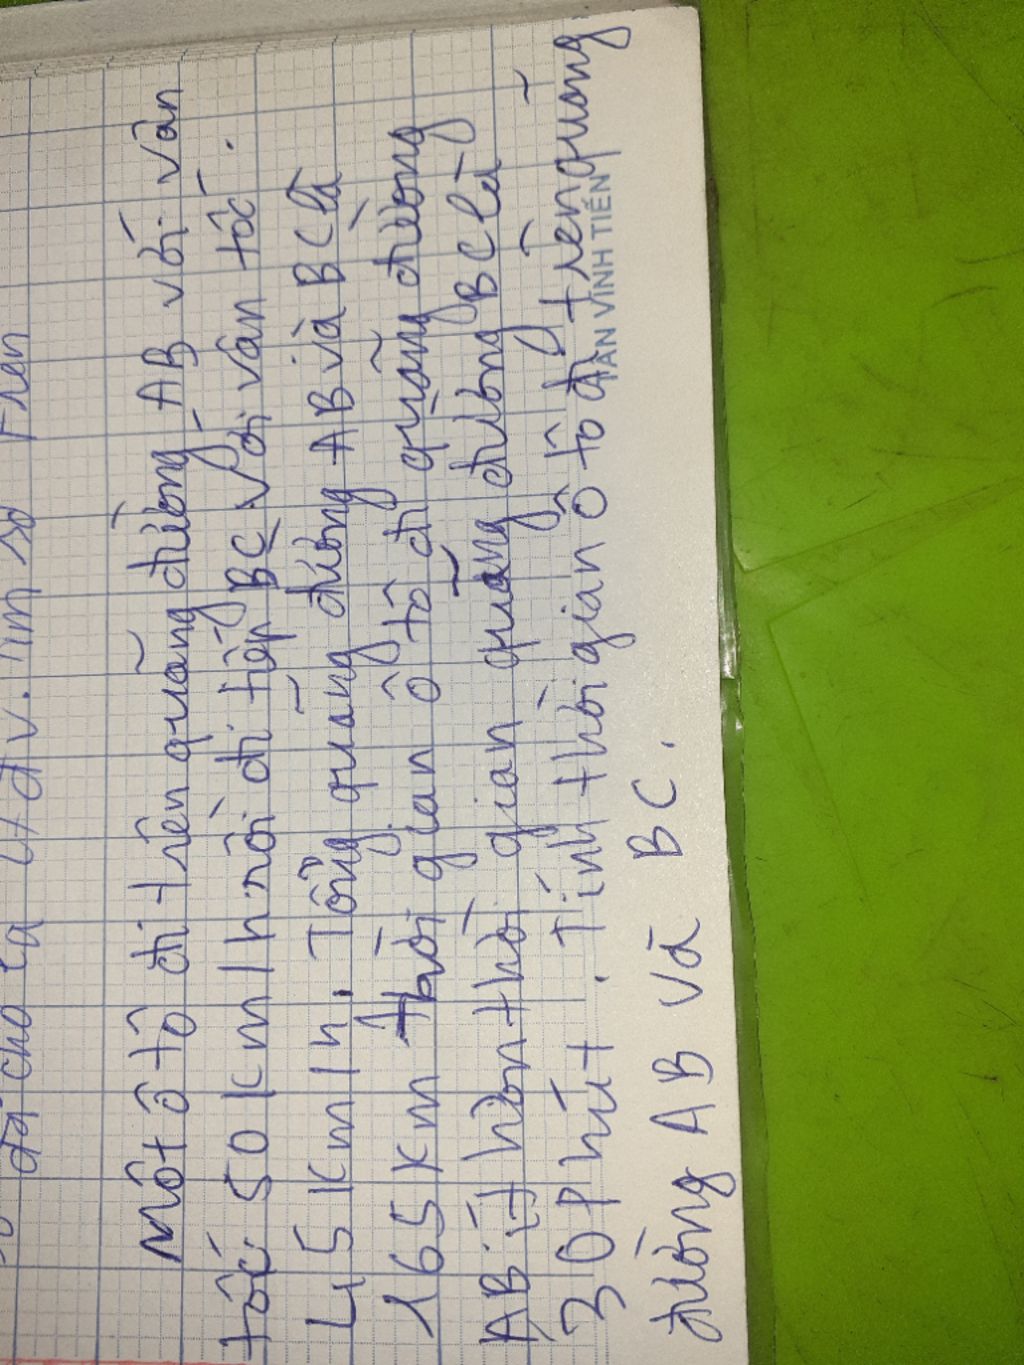 đã cho là 4 đv. Tìm số
Một ô tô đi trên quãng đường AB với vân
tốc 50 km/h rồi đi tiếp BC với vân tốc.
45 km/h. Tổng quãng đường AB và BC là
165 km thời gian ô tô đi quãng đường
AB ít hơn thời gian quãng đường BC là
30 Phút. Tính thời gian ô tô đi trên quãng
đường AB và BC.
VĨNH TIẾN